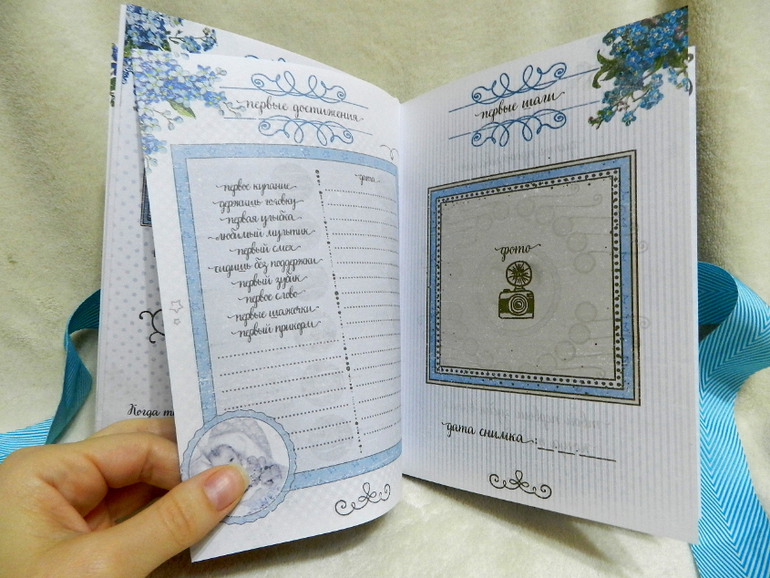 первые достижения
дата
первое купание
держишь головку
первая улыбка
любимый мультик
первый смех
сидишь без поддержки
первый зубик
первое слово
первые шажочки
первый прикорм
Когда
первые шаги
фото
дата снимка :__ __ ____